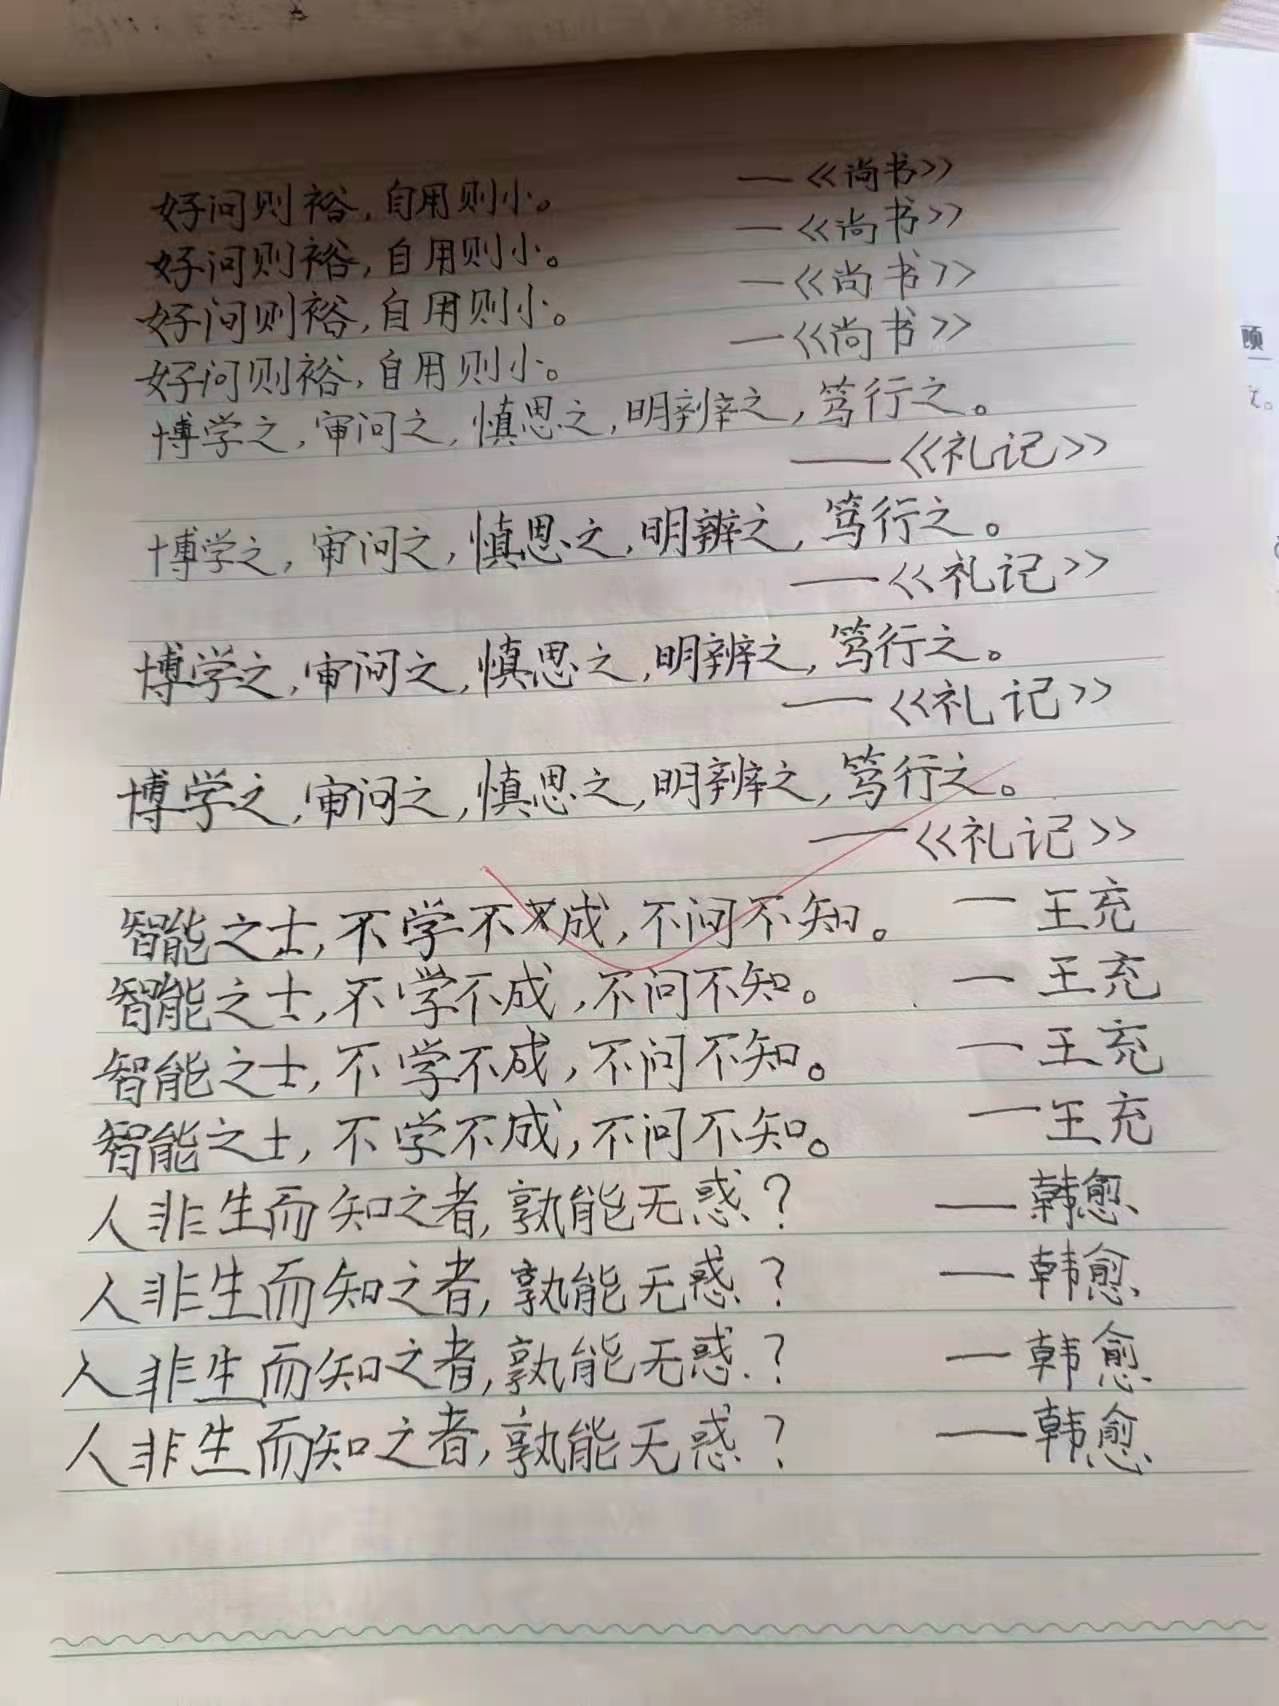 好问则裕,自用则小。 —《尚书》
好问则裕,自用则小。 —《尚书》
好问则裕,自用则小。 —《尚书》
好问则裕,自用则小。 —《尚书》
博学之,审问之,慎思之,明辨之,笃行之。
——《礼记》
博学之,审问之,慎思之,明辨之,笃行之。
——《礼记》
博学之,审问之,慎思之,明辨之,笃行之。
——《礼记》
博学之,审问之,慎思之,明辨之,笃行之。
——《礼记》
智能之士,不学不成,不问不知。 —王充
智能之士,不学不成,不问不知。 —王充
智能之士,不学不成,不问不知。 —王充
智能之士,不学不成,不问不知。 —王充
人非生而知之者,孰能无惑? —韩愈
人非生而知之者,孰能无惑? —韩愈
人非生而知之者,孰能无惑? —韩愈
人非生而知之者,孰能无惑? —韩愈
顾